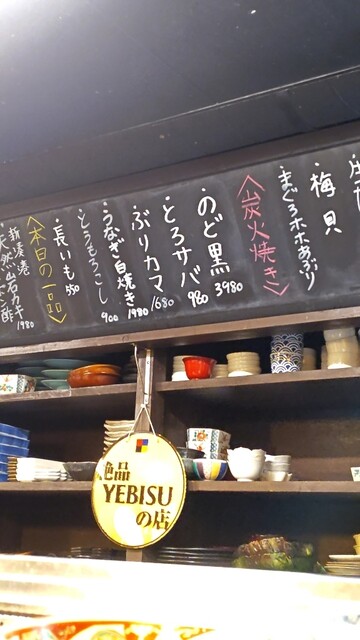 梅貝
・まぐろホホあぶり
〈炭火焼き〉
・のど黒 3980
・とろサバ 980
・ぶりカマ 1680
・うなぎ白焼き 1980
・とうもろこし 900
・長いも 550
〈本日の一品〉
新湊港
天然岩ガキ
1980
絶品
YEBISU
の店